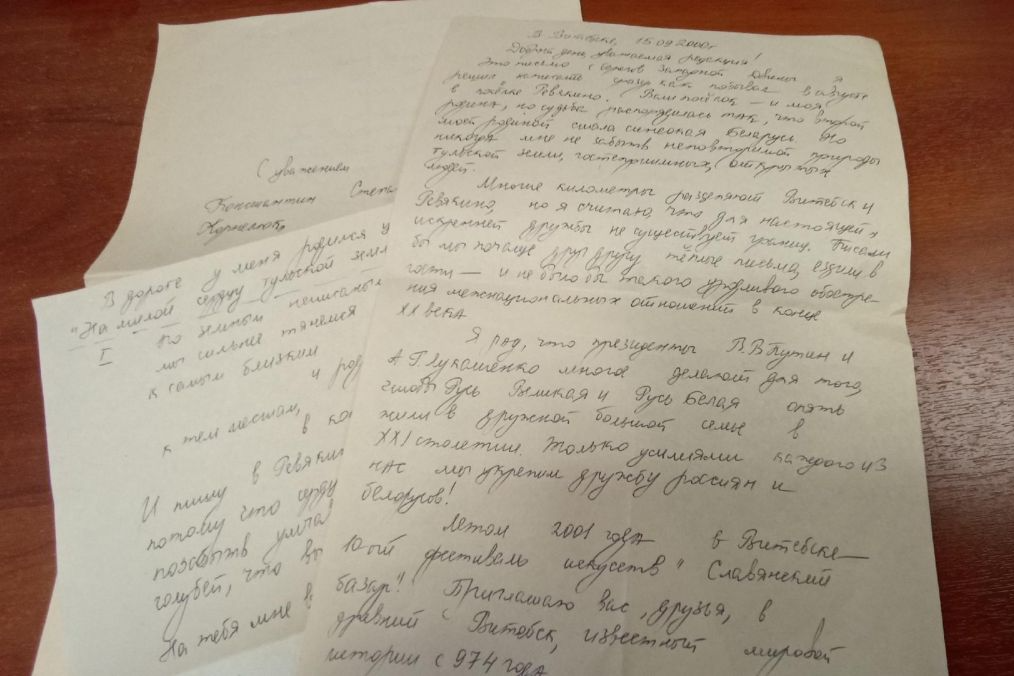 В Витебске, 15.09.2000г
Добрый день, уважаемая редакция!
Это письмо с берегов Западной Двины я
решил написать сразу как побывал в августе
в посёлке Ревякино. Ваш посёлок — и моя
родина, но судьба распорядилась так, что второй
моей родиной стала синеокая Беларусь. Но
никогда мне не забыть неповторимой природы
тульской земли, гостеприимных, открытых
людей.
Многие километры разделяют Витебск и
Ревякино, но я считаю, что для настоящих
искренней дружбы не существует границ. Писали
бы мы почаще друг другу тёплые письма, ездили в
гости — и не было бы такого уродливого обостре-
ния межнациональных отношений в конце
XX века
Я рад, что президенты В.В Путин и
А Г. Лукашенко многое делают для того,
чтобы Русь Великая и Русь Белая опять
жили в дружной большой семье в
XXI столетии. Только усилиями каждого из
нас мы укрепим дружбу россиян и
белорусов!
Летом 2001 года в Витебске
10ый фестиваль искусств "Славянский
базар". Приглашаю вас, друзья, в
древний Витебск, известный мировой
истории с 974 года
С уважением
Константин Степа
Корнелюк
В дороге у меня родился
"На милой сердцу тульской земл
I По земным неписаным
мы сильнее тянемся
к самым близким
и род
к тем местам,
в ко
И пишу в Ревякин
потому что сердцу
позабыть
голубей, что вы
На тебя мне в